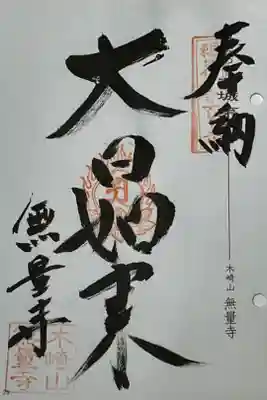 奉納
木崎山 無量寺
大日如来
無量寺
木崎山
無量寺